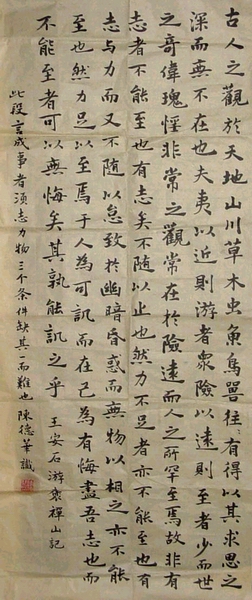 古人之觀於天地山川草木虫魚鳥獸往々有得以其求思之
深而無不在也夫夷以近則游者衆險以遠則至者少而世
之奇偉瑰怪非常之觀常在於險遠而人之所罕至焉故非有
志者不能至也有志矣不随以止也然力不足者亦不能至也有
志与力而又不随以怠致於幽暗昏惑而無物以相之亦不能
至也然力足以至焉于人為可訊而在己為有悔盡吾志也而
不能至者可以無悔矣其孰能訊之乎 王安石游褒禅山記
此段言成事者須志力物三个条件缺其一而難也陳德華識